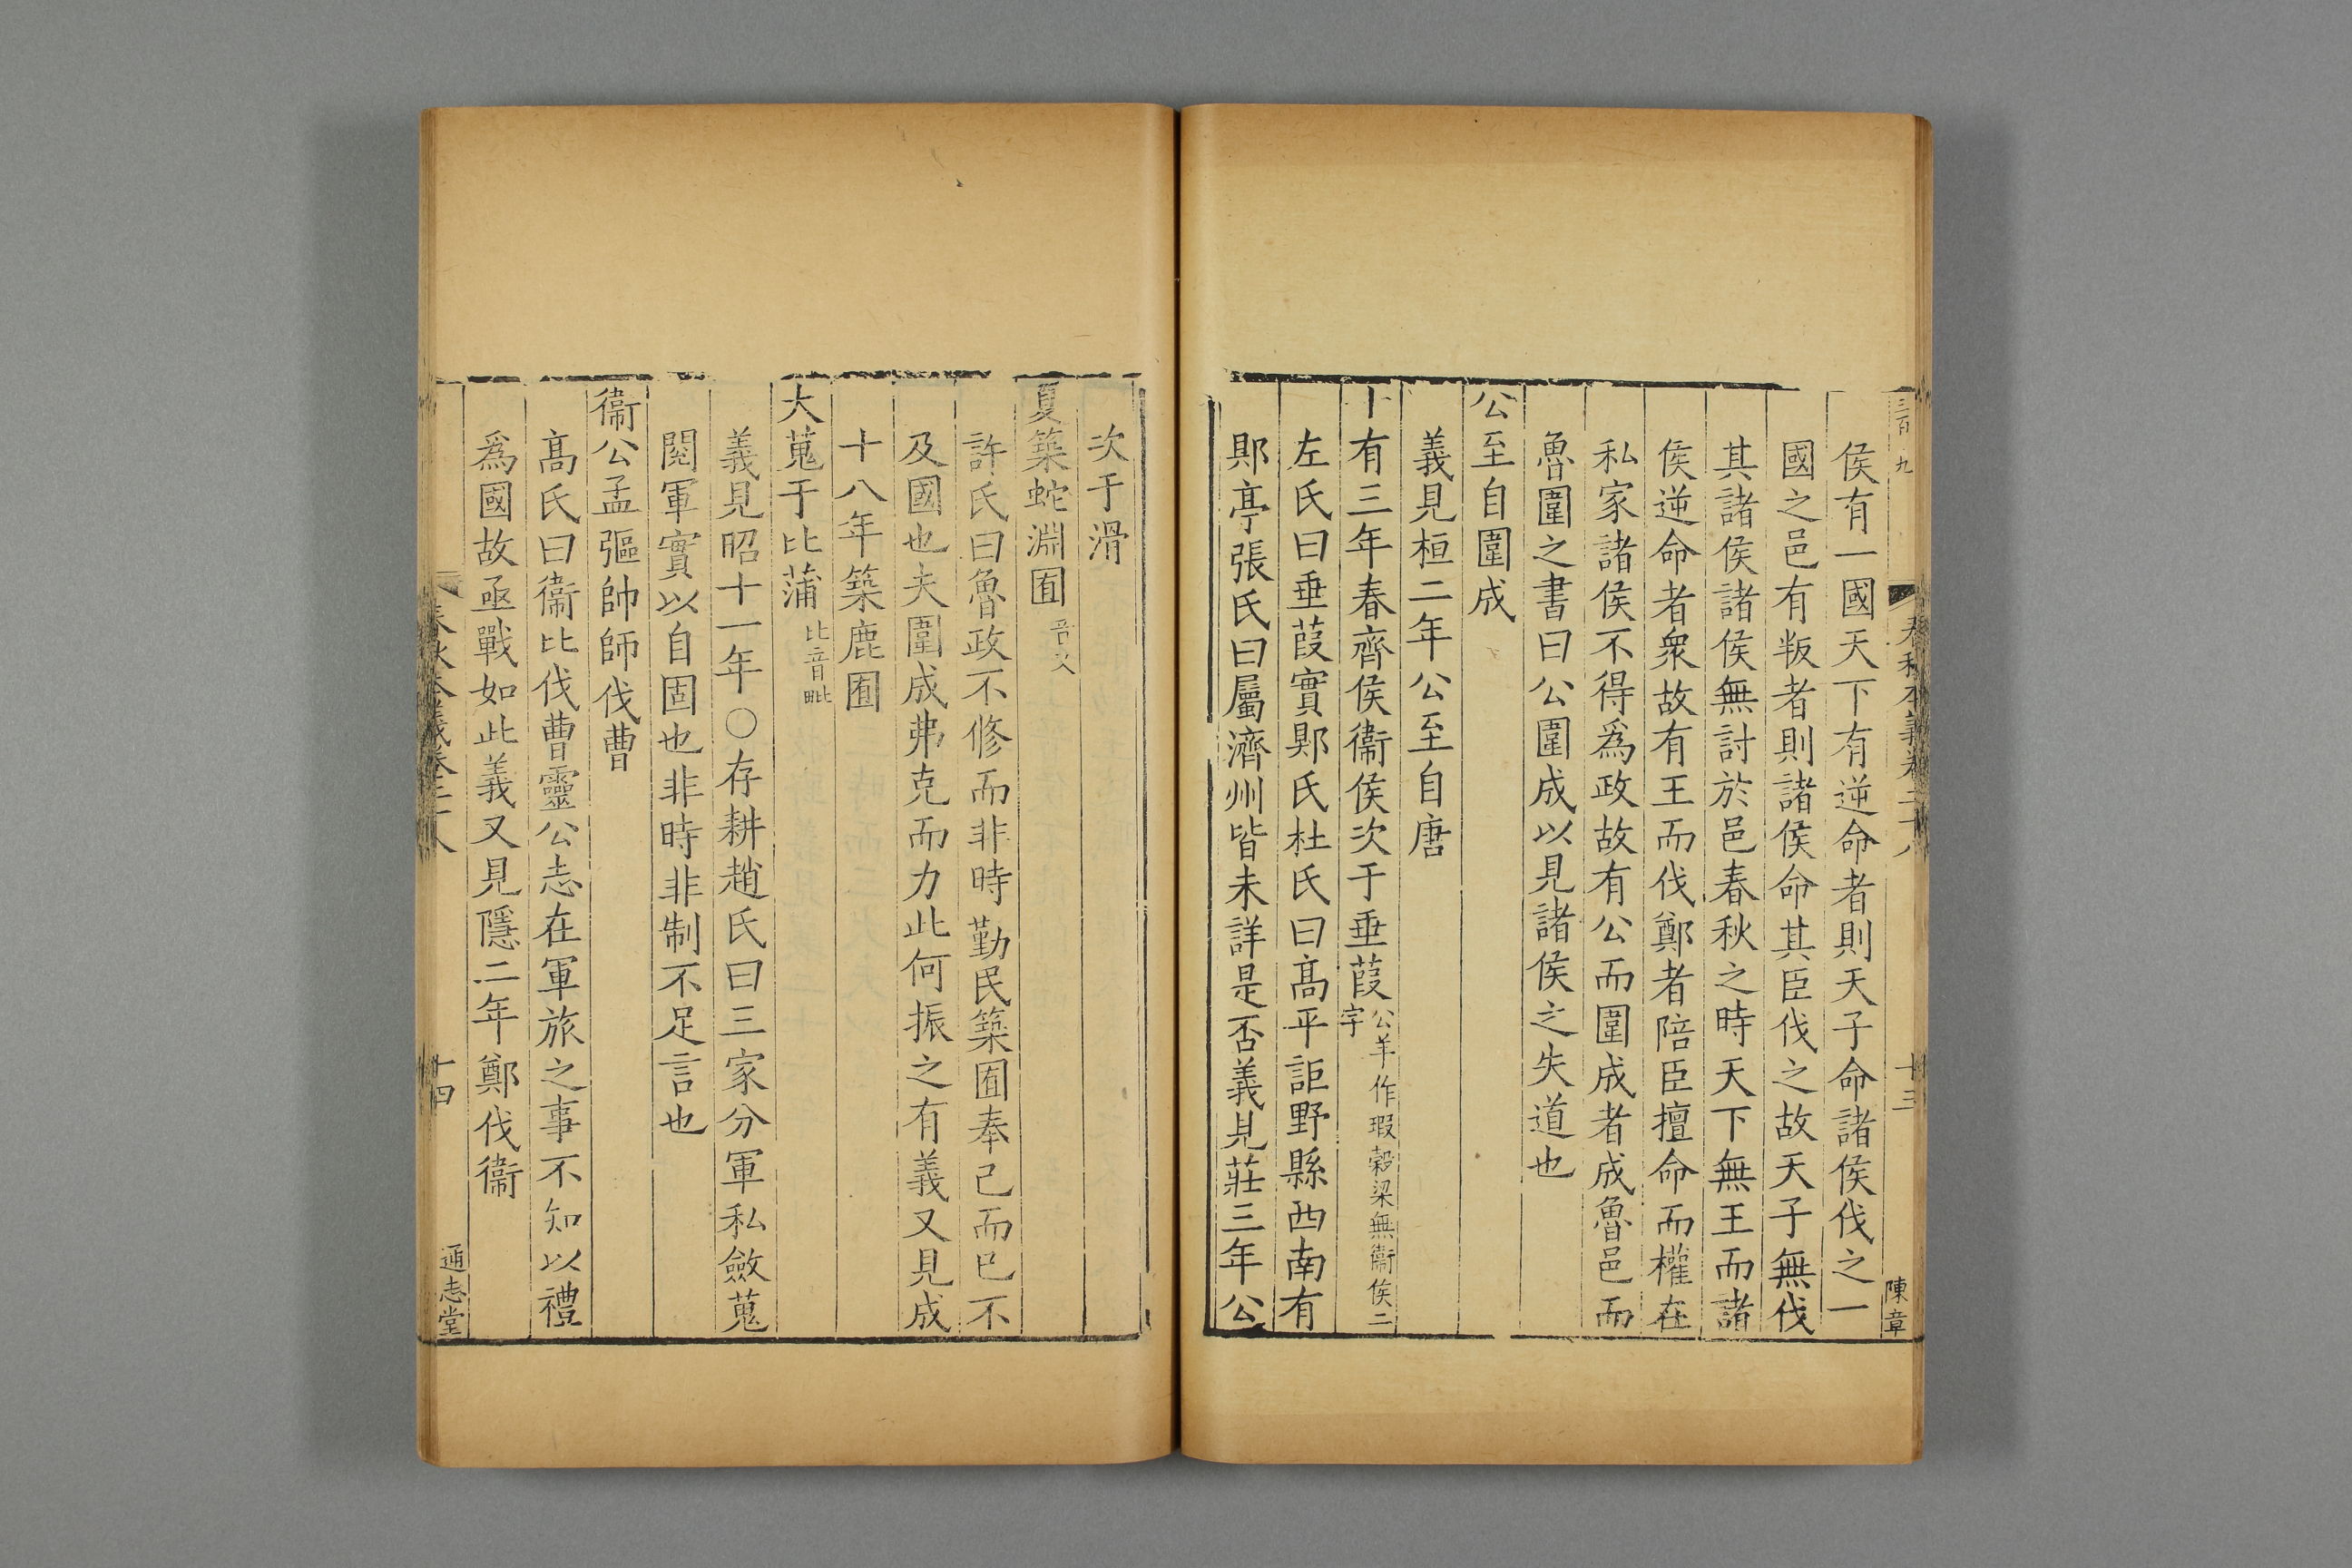 侯有一國天下有逆命者則天子命諸侯伐之一
國之邑有叛者則諸侯命其臣伐之故天子無伐
其諸侯諸侯無討於邑春秋之時天下無王而諸
侯逆命者衆故有王而伐鄭者陪臣擅命而權在
私家諸侯不得爲政故有公而圍成者成魯邑而
魯圍之書曰公圍成以見諸侯之失道也
公至自圍成
義見桓二年公至自唐
十有三年春齊侯衞侯次于垂葭公羊作瑕穀梁無衞侯二字
左氏曰垂葭實郹氏杜氏曰髙平詎野縣西南有
郹亭張氏曰屬濟州皆未詳是否義見莊三年公
陳章
十三
次于滑
夏築蛇淵囿音又
許氏曰魯政不修而非時勤民築囿奉己而已不
及國也夫圍成弗克而力此何振之有義又見成
十八年築鹿囿
大蒐于比蒲比音毗
義見昭十一年○存耕趙氏曰三家分軍私斂蒐
閱軍實以自固也非時非制不足言也
衞公孟彄帥師伐曹
髙氏曰衞比伐曹靈公志在軍旅之事不知以禮
爲國故亟戰如此義又見隱二年鄭伐衞
春秋本義卷二十八
十四
通志堂